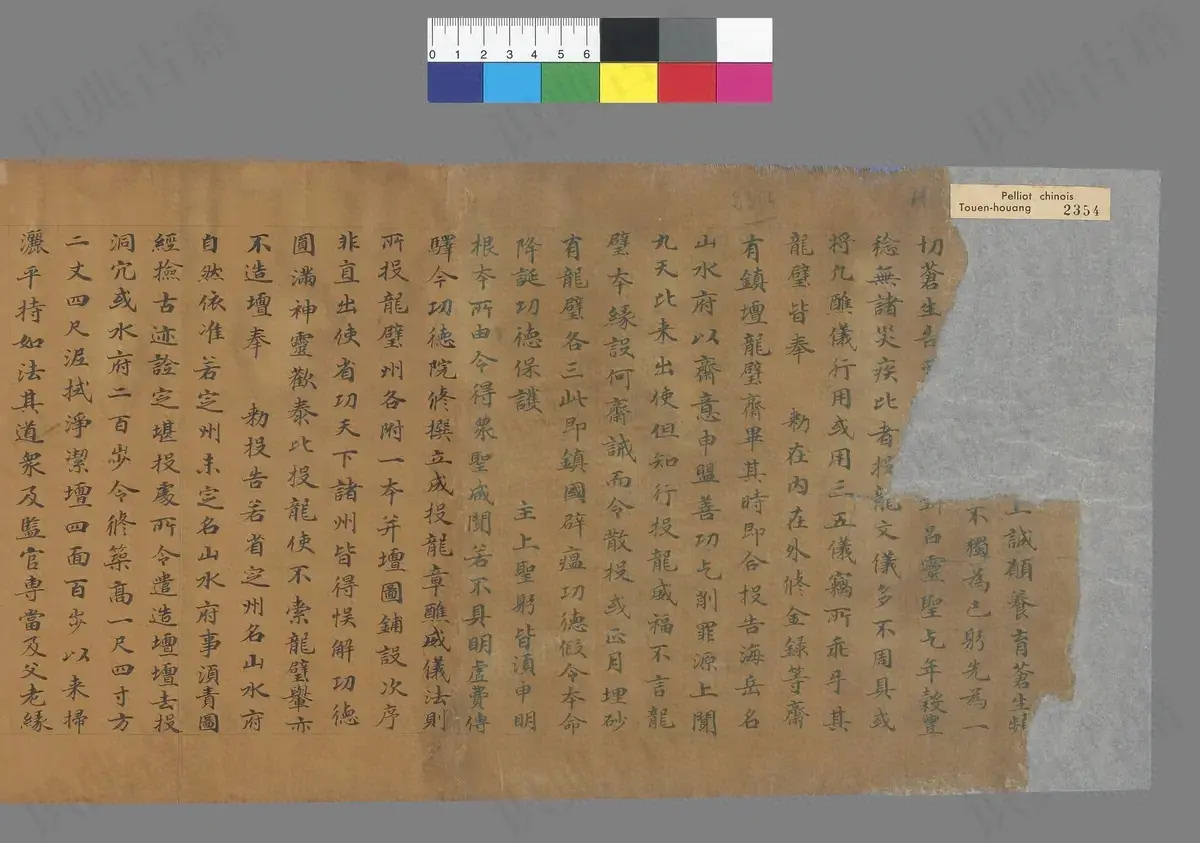 Pelliot chinois
Touen-houang 2354
0 1 2 3 4 5 6
2354
上誠願養育蒼生
不獨為己躬先為一
切蒼生告 呂靈聖乞年穀豐
稔無諸災疾比者投龍文儀多不周具或
將九醮儀行用或用三五儀竊所乖乎其
龍璧皆奉 勑在內在外修金録等齋
有鎮壇龍璧齋畢其時即合投告海岳名
山水府以齋意申盟善功乞削罪源上聞
九天比来出使但知行投龍威福不言龍
璧本緣設何齋誠而令散投或正月埋砂
有龍璧各三此即鎮國辟瘟功德假令本命
降誕功德保護 主上聖躬皆湏申明
根本所由令得衆聖咸聞若不具明虚費傳
驛今功德院修撰立成投龍章醮威儀法則
所投龍璧州各附一本并壇圖鋪設次序
非直出使省功天下諸州皆得悮解功德
圓滿神靈歡泰比投龍使不索龍璧轝亦
不造壇奉 勑投告若省定州名山水府
自然依准若定州未定名山水府事湏責圖
經撿古迹詮定堪投處所令遣造壇壇去投
洞穴或水府二百步令修築高一尺四寸方
二丈四尺泥拭淨潔壇四面百步以来掃
灑平持如法其道衆及監官専當及父老緣